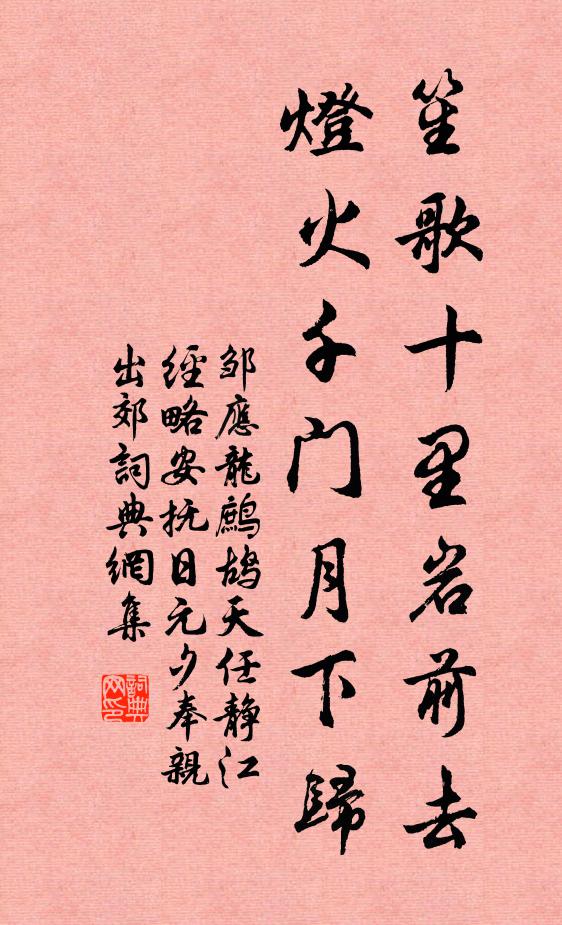 笙歌十里岩前去
燈火千门月下歸
邹應龍鷓鴣天任静江
經略安抚日元夕奉親
出郊詞典網集
詞典
网印